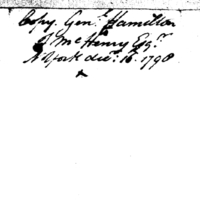 Copy. Gen.l Hamilton
to
J McHenry Esq.r
N York dec.r 16. 1798